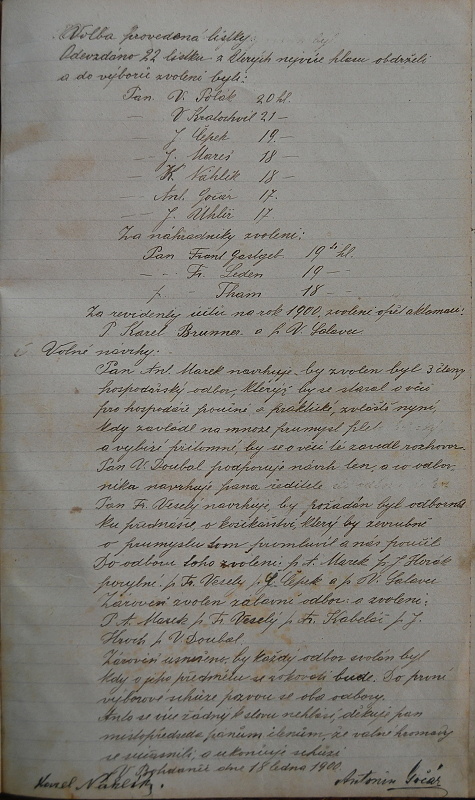 Volba provedená lístky.
Odevzdáno 22 lístků z kterých nejvíce hlasů obdrželi
a do výboru zvoleni byli:
Pan V. Polák 20 hl.
— V Kratochvíl 21 —
— J Čípek 19. —
— J. Mareš 18 —
— K. Náhlík 18 —
— Ant. Gočár 17.
— J. Uhlíř 17
Za náhradníky zvoleni:
Pan Frant 19 hl.
— Fr. Leden 19 —
p. Tham 18 —
Za revidenty účtů na rok 1900, zvoleni opět aklamací
P Karel Brunner a p. V. Salava
Volné návrhy:
Pan Ant. Marek navrhuje, by zvolen byl 3 členný
hospodářský odbor, kterýž by se staral o věci
pro hospodáře poučné a praktické, zvláště nyní,
kdy zavládl na mnoze průmysl
a vybízí přítomné, by se o věci té zavedl rozhovor.
Pan V. Doubal podporuje návrh ten, a co odbor-
níka navrhuje pana ředitele
Pan Fr. Veselý navrhuje, by požádán byl odborník
ku přednášce, o košíkářství, který by zevrubně
o průmyslu tom promluvil a nás poučil
Do odboru toho zvoleni: p. A. Marek p. J Horák
p. Fr. Veselý p. Čípek a p. V. Salava
Zároveň zvolen zábavní odbor a zvoleni:
P. A. Marek p. Fr. Veselý p. Fr. Kabeláč p. J.
Hroch p V Doubal.
Zároveň usneseno, by každý odbor svolán byl
kdy o jeho předmětu se rokovati bude. Do první
výborové schůze pozvou se oba odbory.
Anto se více žádný k slovu nehlásí, děkuje pan
místopředseda pánům členům, že valné hromady
se súčastnili, a ukončuje schůzi
V Bohdanči dne 18 ledna 1900.
Karel Náhlík. Antonín Gočár